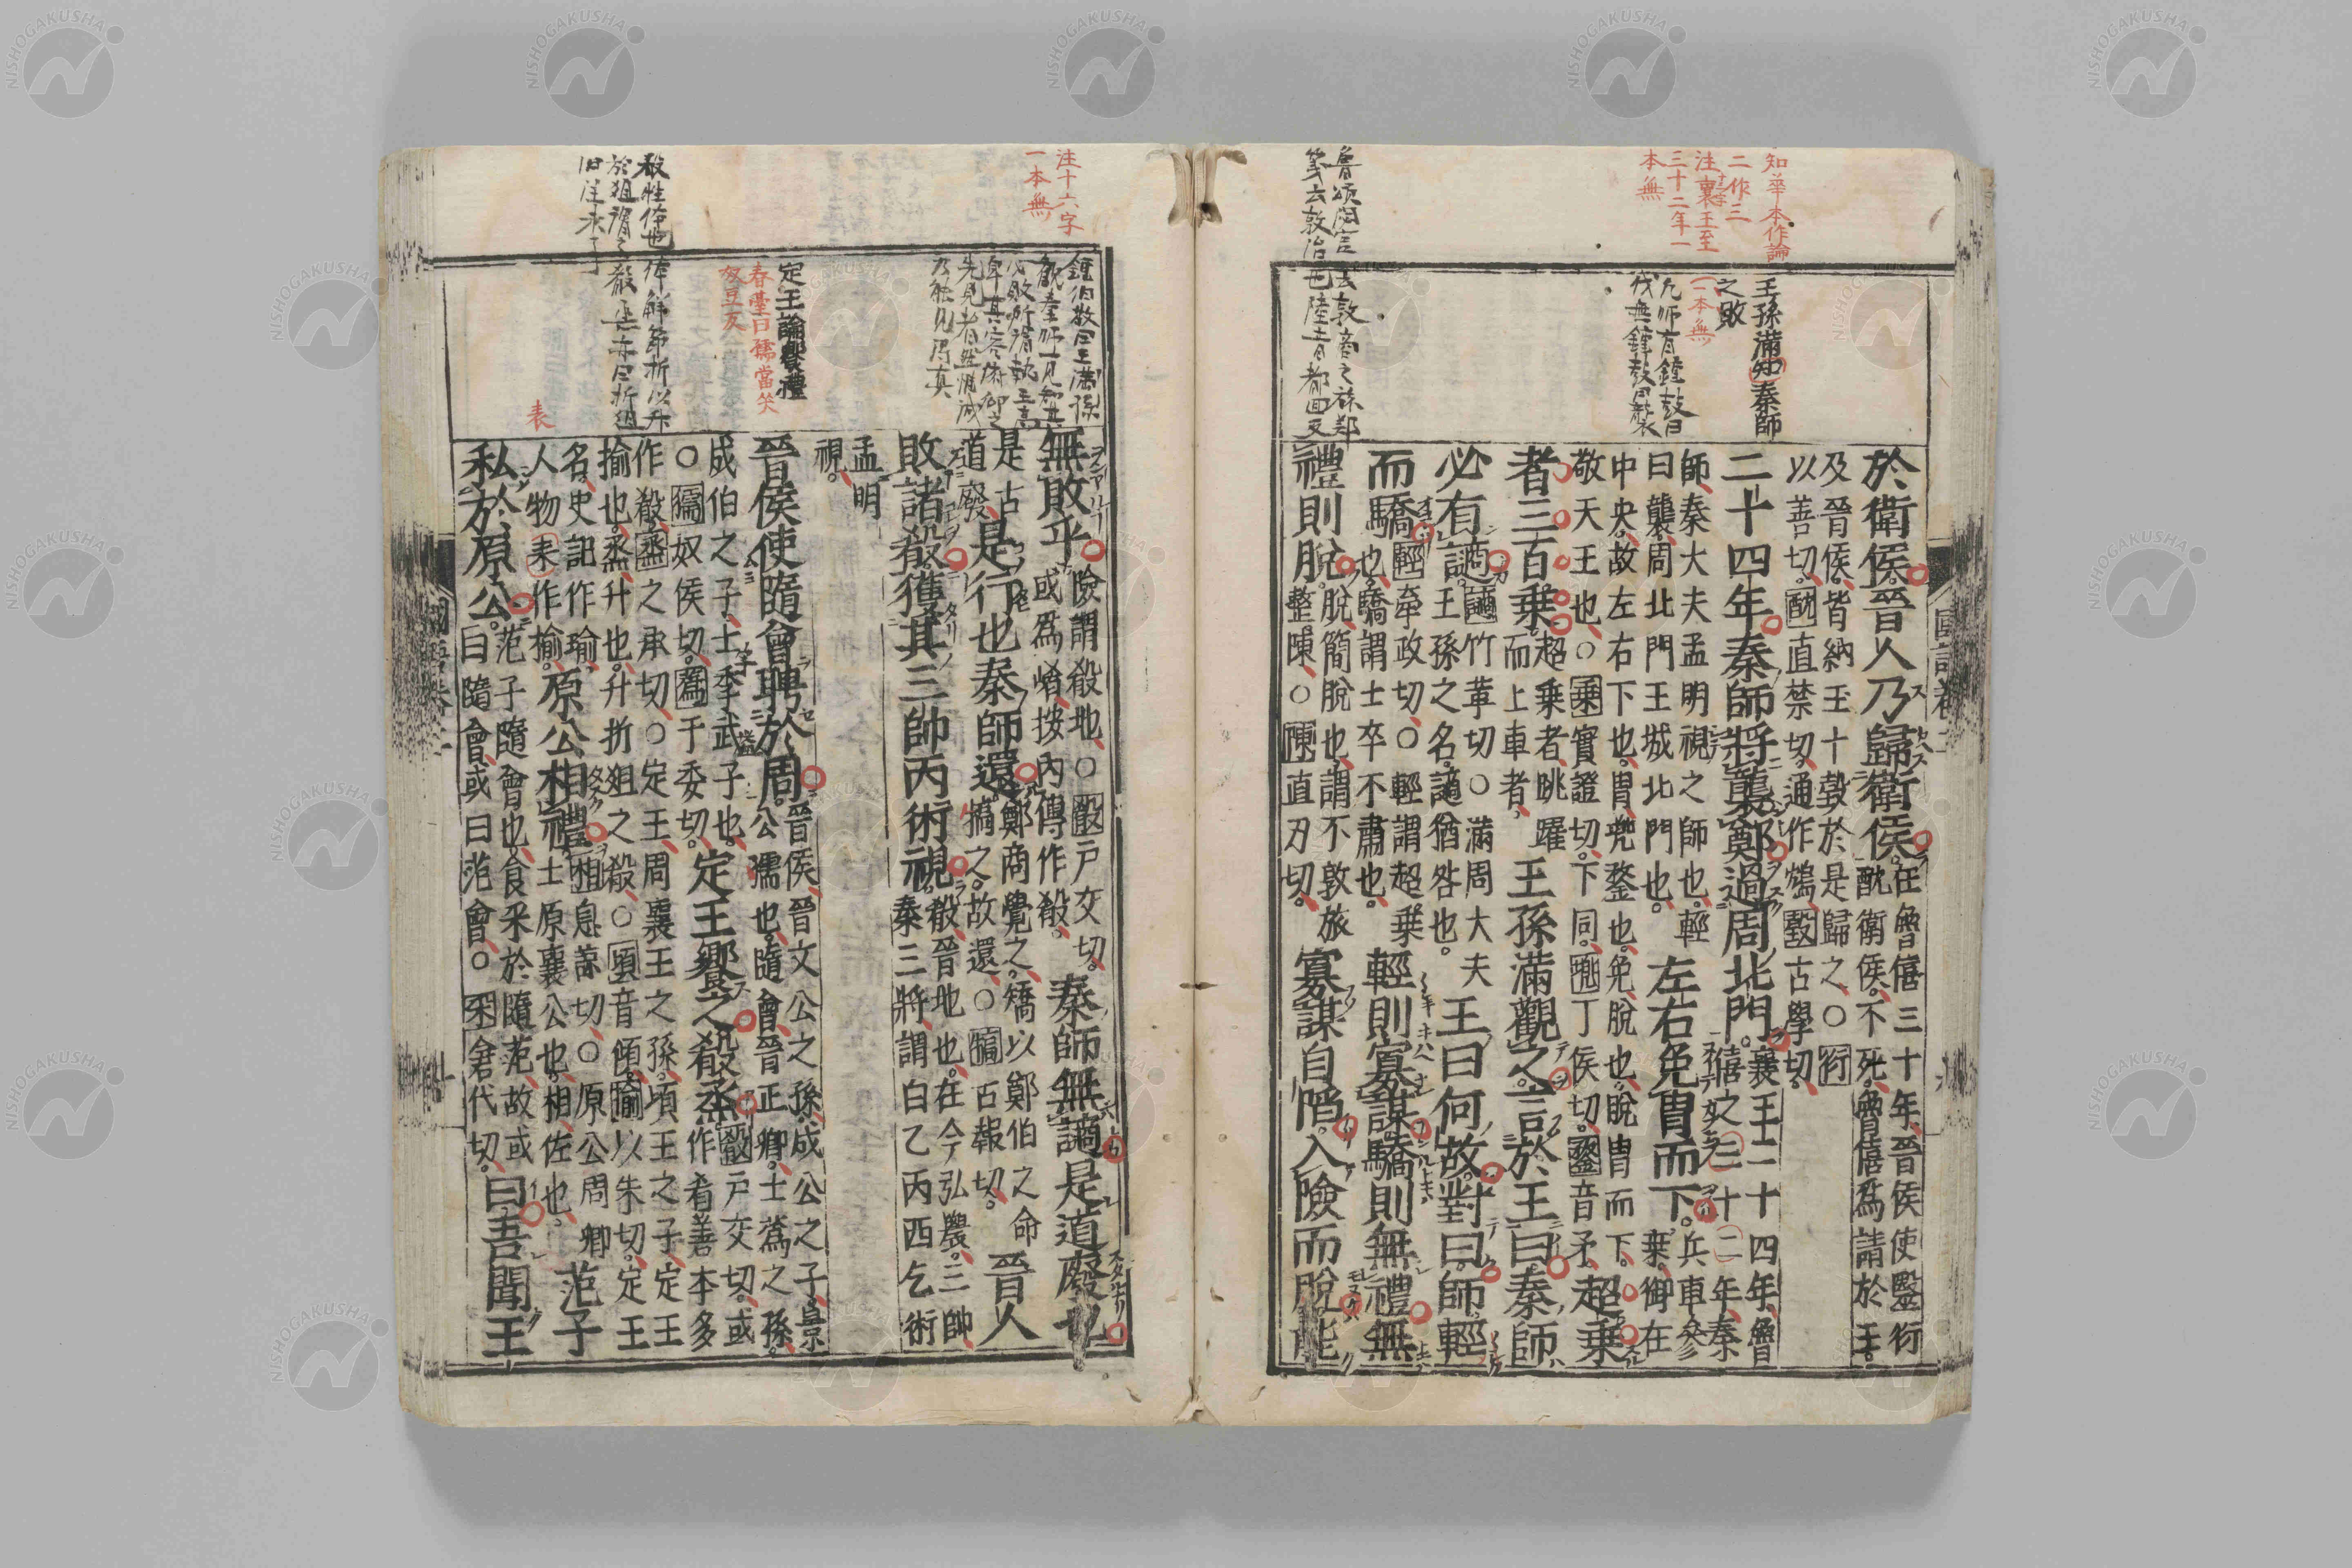 於衛侯晉人乃歸衛侯
任魯僖三十年晉侯使醫衍
酖衛侯不死魯僖爲請於王
及晉侯皆納玉十瑴於是歸之○衍
以善切酖直禁切通作鴆瑴古學切
二十四年秦師將襲鄭過周北門
襄王二十四年魯
僖之三十二年秦
師秦大夫孟明視之師也輕
曰襲周北門王城北門也
左右免胄而下
兵車參
乗御在
中央故左右下也胄兠鍪也免脫也脫胄而下
敬天王也○乗實證切下同兠丁侯切鍪音矛
超乗
者三百乗
超乗者跳躍
而上車者
王孫滿觀之言於王曰秦師
必有謫
謫竹革切○滿周大夫
王孫之名謫猶咎也
王曰何故對曰師輕
而驕
輕牽政切○輕謂超乗
也驕謂士卒不肅也
輕則寡謀驕則無禮無
禮則脫
脫簡脫也謂不敦旅
整陳○陳直刃切
寡謀自陷入險而脫能
王孫滿知秦師
之敗
一本無
凡師有鐘鼓曰
伐無鐘鼓曰襲
知華本作論
二作三
注襄王至
三十二年一
本無
國語卷二
無敗乎
險謂殽地○殽戸交切
或爲崤按內傳作殽
秦師無謫是道廢也
是古
道廢
是行也秦師還
鄭商覺之矯以鄭伯之命
犒之故還○犒古報切
晉人
敗諸殽獲其三帥丙術視
殽晉地也在今弘農三帥
秦三將謂白乙丙西乞術
孟明
視
晉侯使隨會聘於周
晉侯晉文公之孫成公之子景
公獳也隨會晉正卿士蒍之孫
成伯之子士季武子也
○獳奴侯切蒍于委切
定王饗之殽烝
殽戸交切或
作肴善本多
作殽烝之承切○定王周襄王之孫頃王之子定王
揄也烝升也升折俎之殽○頃音傾揄以朱切定王
名史記作瑜
人物表作揄
原公相禮
相息諒切○原公周卿
士原襄公也相佐也
范子
私於原公
范子隨會也食采於隨范故或
曰隨會或曰范會○采倉代切
曰吾聞王
定王論饗禮
春臺曰獳當奴
豆反
注十六字
一本無
表